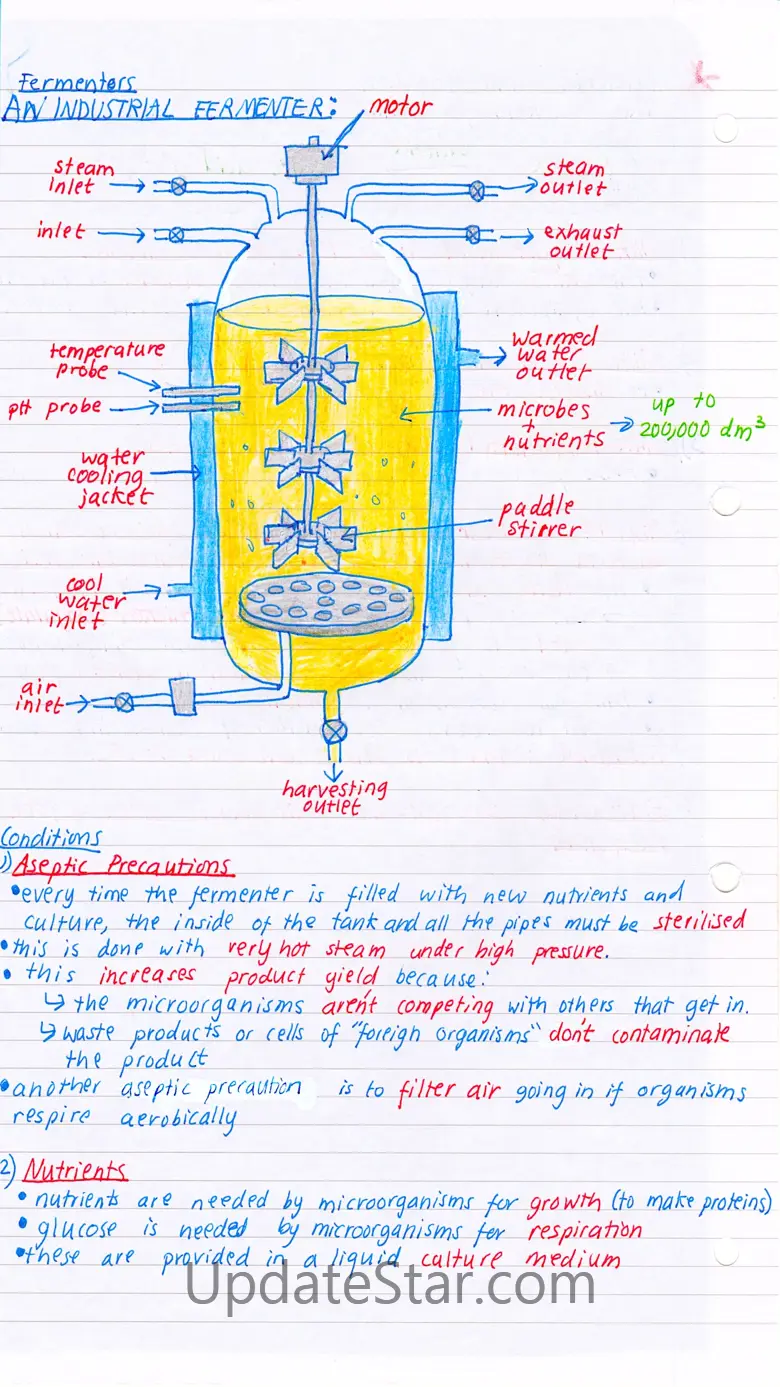 Fermenters
AN INDUSTRIAL FERMENTER:
motor
steam
inlet
steam
outlet
inlet
exhaust
outlet
temperature
probe
pH probe
warmed
water
outlet
microbes
+
nutrients
up to
200,000 dm³
water
cooling
jacket
paddle
stirrer
cool
water
inlet
air
inlet
harvesting
outlet
Conditions
1) Aseptic Precautions
• every time the fermenter is filled with new nutrients and
culture, the inside of the tank and all the pipes must be sterilised
• this is done with very hot steam under high pressure.
• this increases product yield because:
↳ the microorganisms aren't competing with others that get in.
↳ waste products or cells of "foreign organisms" don't contaminate
the product
• another aseptic precaution is to filter air going in if organisms
respire aerobically
2) Nutrients
• nutrients are needed by microorganisms for growth (to make proteins)
• glucose is needed by microorganisms for respiration
• these are provided in a liquid culture medium
UpdateStar.com